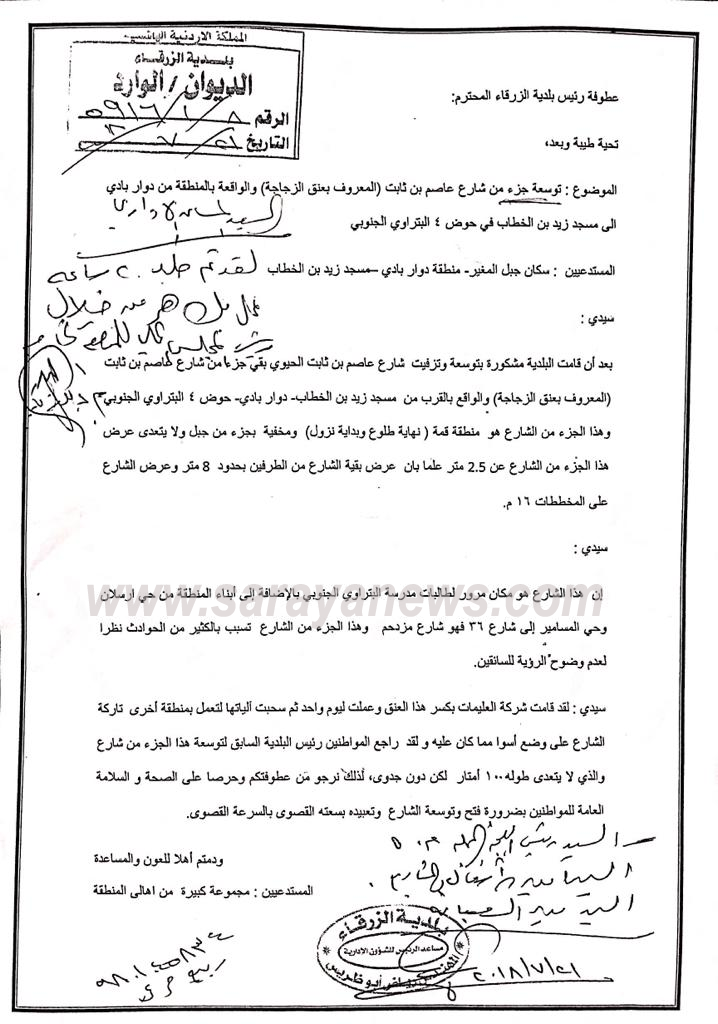 المملكة الاردنية الهاشمية
بلدية الزرقاء
الديوان / الوارد
الرقم
التاريخ ٢١ / ٧
عطوفة رئيس بلدية الزرقاء المحترم:
تحية طيبة وبعد،
الموضوع : توسعة جزء من شارع عاصم بن ثابت (المعروف بعنق الزجاجة) والواقعة بالمنطقة من دوار بادي
الى مسجد زيد بن الخطاب في حوض ٤ البتراوي الجنوبي
المستدعيين : سكان جبل المغير- منطقة دوار بادي –مسجد زيد بن الخطاب
لقد تم
من خلال
سيدي :
بعد أن قامت البلدية مشكورة بتوسعة وتزفيت شارع عاصم بن ثابت الحيوي بقي جزءا من شارع عاصم بن ثابت
(المعروف بعنق الزجاجة) والواقع بالقرب من مسجد زيد بن الخطاب- دوار بادي- حوض ٤ البتراوي الجنوبي
وهذا الجزء من الشارع هو منطقة قمة ( نهاية طلوع وبداية نزول) ومخفية بجزء من جبل ولا يتعدى عرض
هذا الجزء من الشارع عن 2.5 متر علما بان عرض بقية الشارع من الطرفين بحدود 8 متر وعرض الشارع
على المخططات ١٦ م.
سيدي :
www.sarayanews.com
إن هذا الشارع هو مكان مرور لطالبات مدرسة البتراوي الجنوبي بالإضافة إلى أبناء المنطقة من حي ارسلان
وحي المسامير إلى شارع ٣٦ فهو شارع مزدحم وهذا الجزء من الشارع تسبب بالكثير من الحوادث نظرا
لعدم وضوح الرؤية للسائقين.
سيدي : لقد قامت شركة العليمات بكسر هذا العنق وعملت ليوم واحد ثم سحبت آلياتها لتعمل بمنطقة أخرى تاركة
الشارع على وضع أسوا مما كان عليه و لقد راجع المواطنين رئيس البلدية السابق لتوسعة هذا الجزء من شارع
والذي لا يتعدى طوله ١٠٠ أمتار لكن دون جدوى، لذلك نرجو من عطوفتكم وحرصا على الصحة و السلامة
العامة للمواطنين بضرورة فتح وتوسعة الشارع وتعبيده بسعته القصوى بالسرعة القصوى.
ودمتم أهلا للعون والمساعدة
المستدعيين : مجموعة كبيرة من اهالى المنطقة
بلدية الزرقاء
مساعد الرئيس للشؤون الادارية
المهندس رياض أبو طريبس
٢٠١٨/٧/٢١